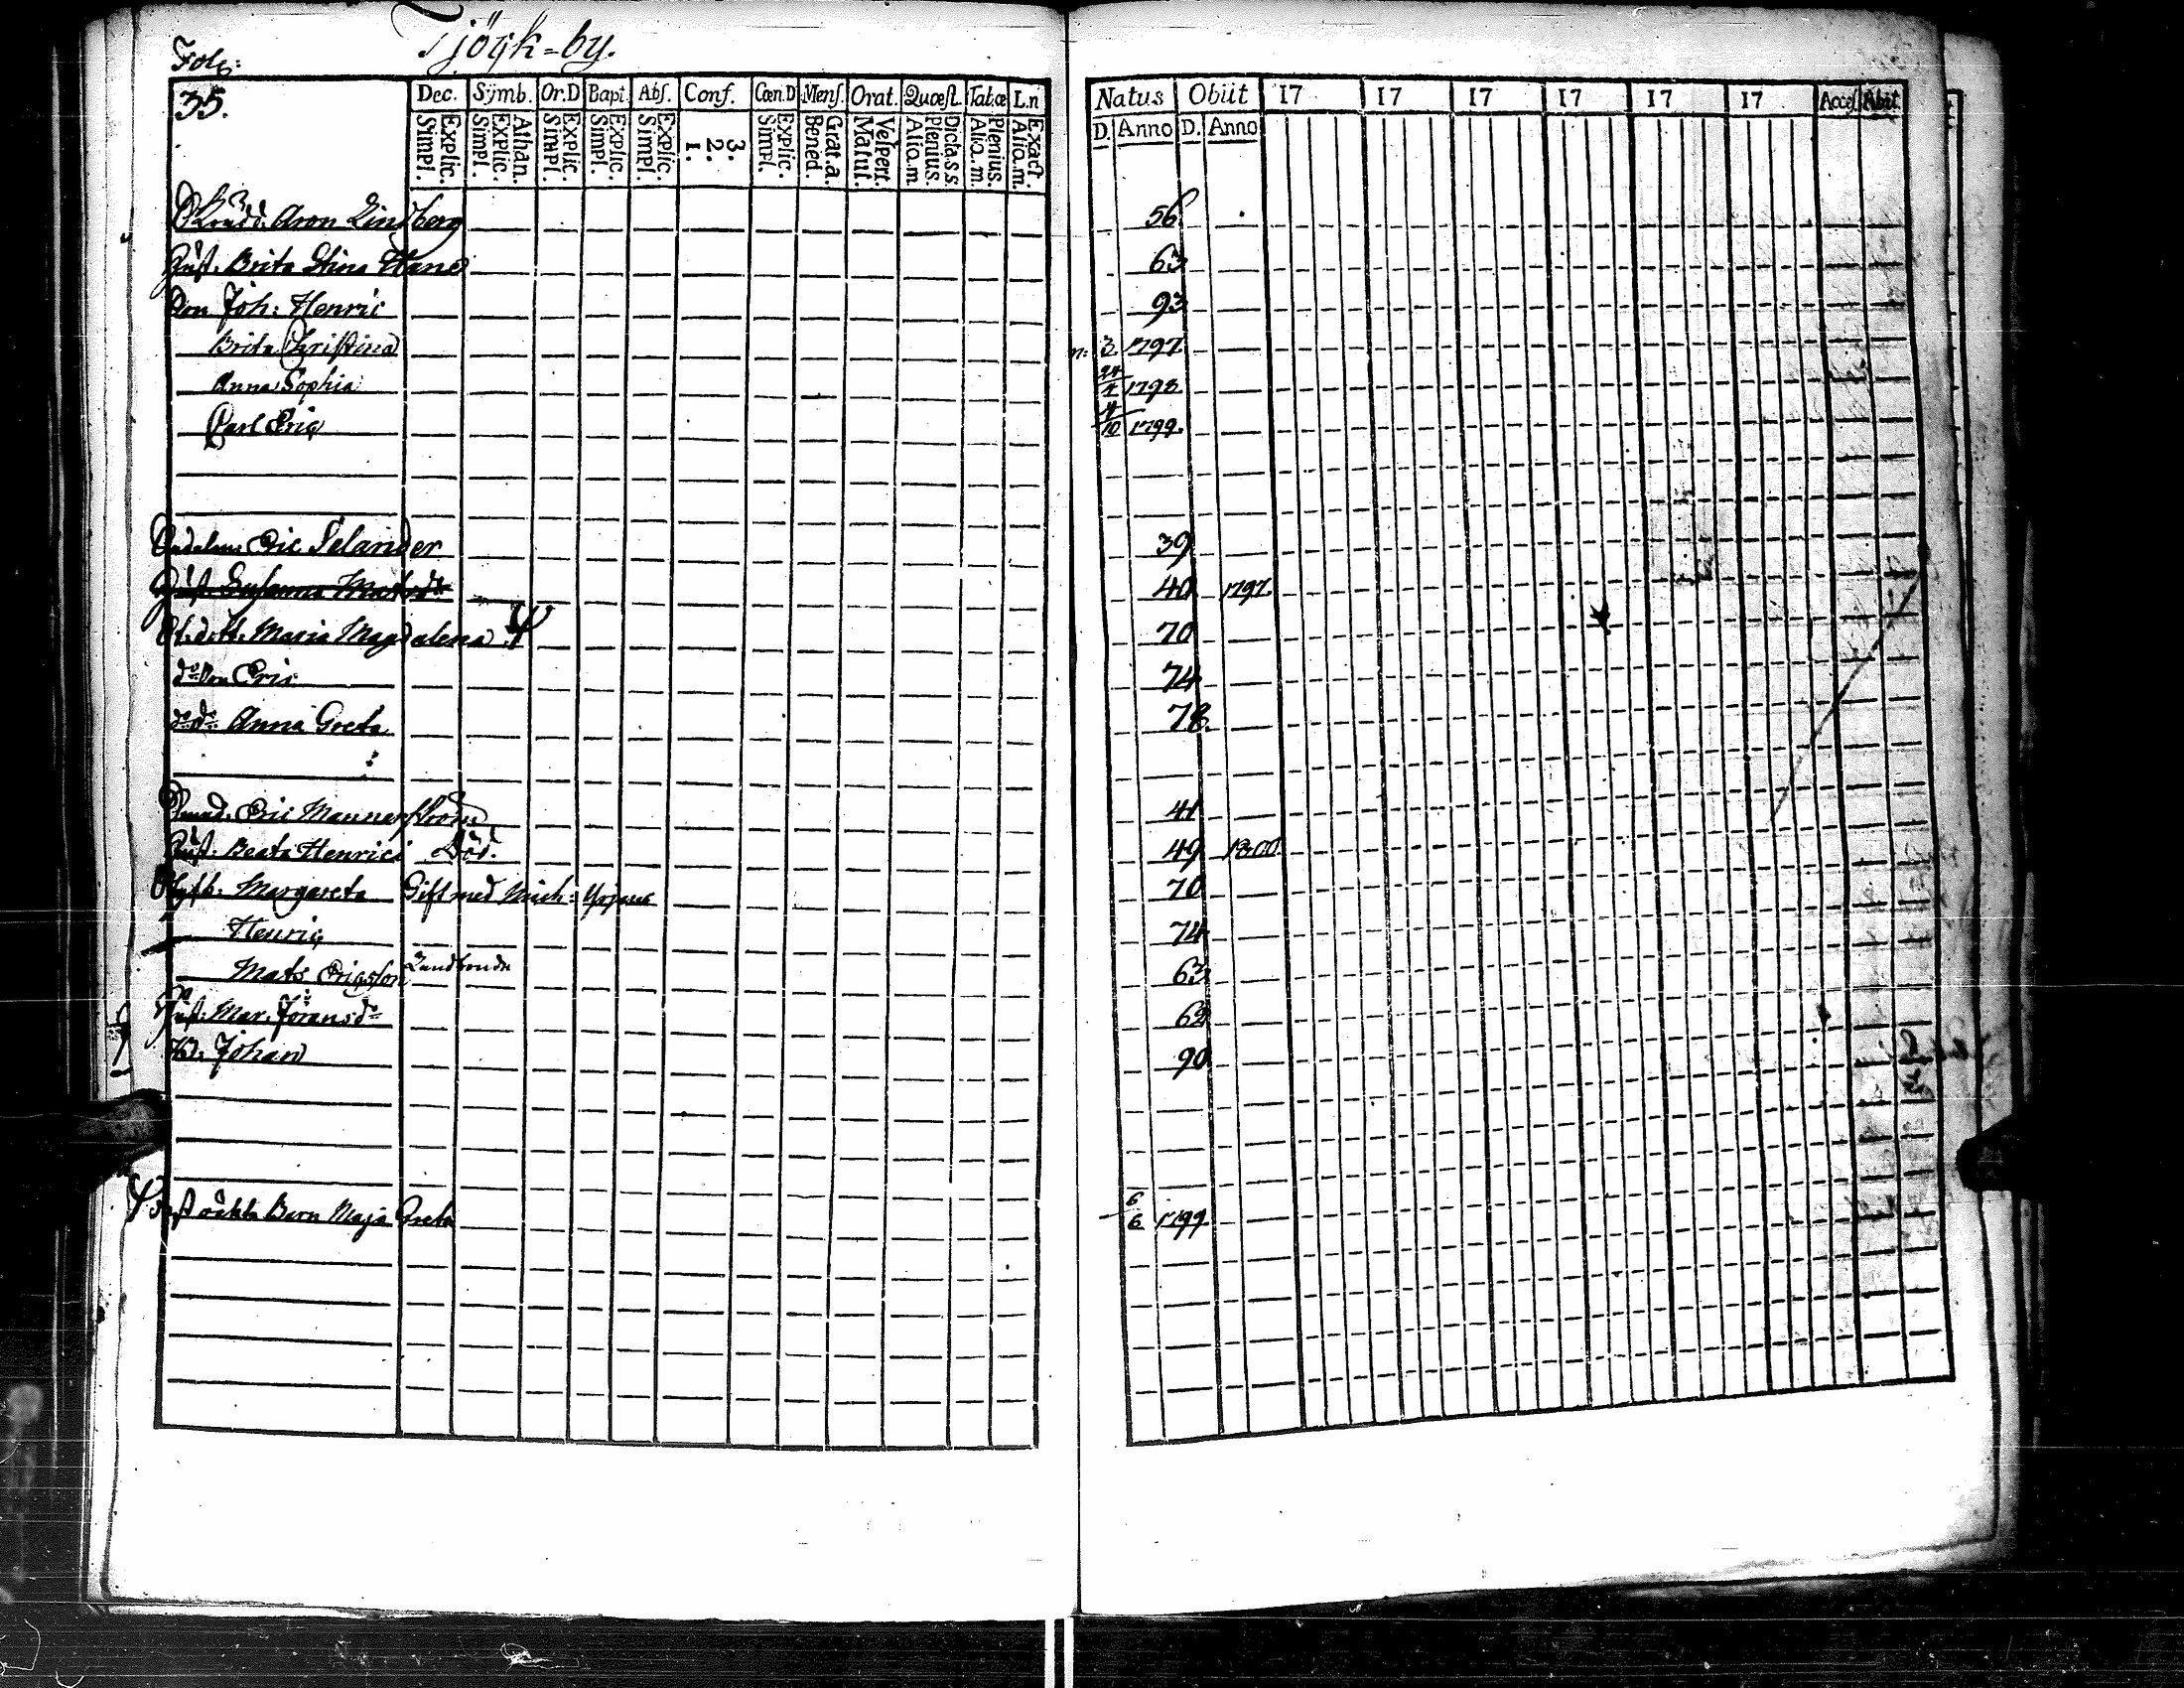 Tjöck=by.
Fol:
35.
Dec. Symb. Or.D Bapt. Abs. Conf. Cœn.D Mens. Orat. Quœst. Tab.œ L.n
Simpl. Explic. Simpl. Explic. Athan. Simpl. Explic. Simpl. Explic. Simpl. Explic. 1. 2. 3. Simpl. Explic. Bened. Grat.a. Matut. Vespert. Alio.m Plenius. Dicta.s.s. Alia.m. Plenius. Alia.m. Exact.
Natus Obiit 17 17 17 17 17 17 Acces. Abit.
D. Anno D. Anno
Aron Lindberg 56
Hust. Brita Stina Hane 63
Son Joh: Henric 93
Brita Christina 1797
Anna Sophia 24/4 1798
Carl Eric 4/10 1799.
Eric Selander 39
Hust. Susanna Matsdr 40 1797.
Maria Magdalena 70
do Son Eric 74
do do Anna Greta 78.
Eric Mannerström 41
Hust. Beata Henrici Död. 49 1800.
Margareta Gift med Mich: 70
Henric 74
Mats Ericsson Landbonde 63
Hust. Mar. Jöransdr 62
Johan 90
oäkta Barn Maja Greta 6/6 1799